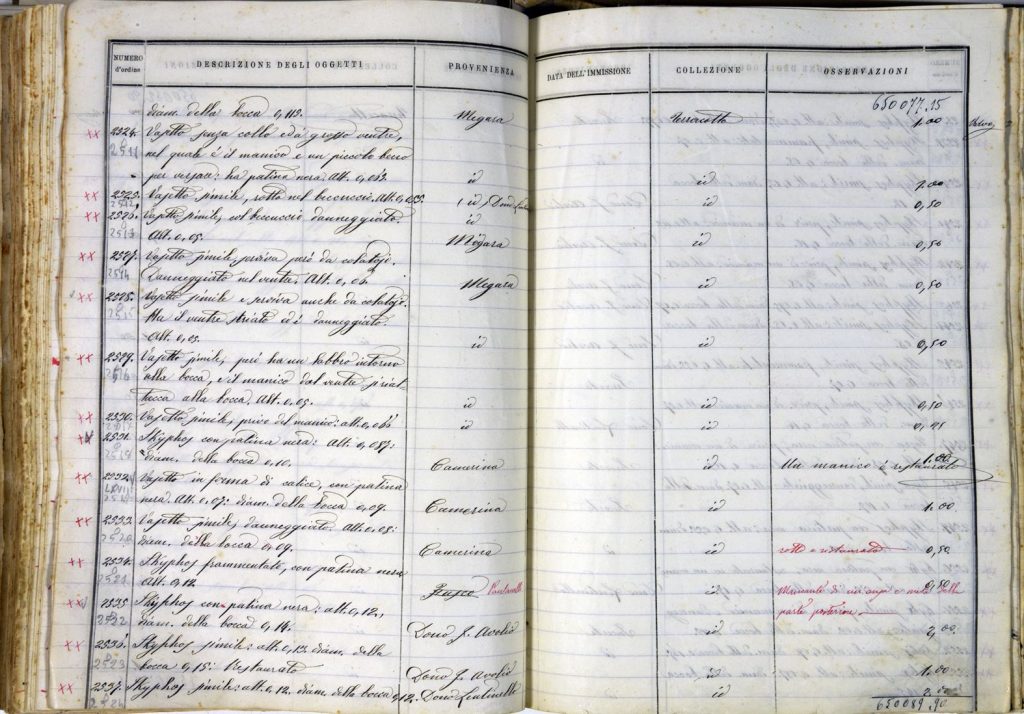 NUMERO d'ordine DESCRIZIONE DEGLI OGGETTI PROVENIENZA DATA DELL'IMMISSIONE COLLEZIONE OSSERVAZIONI
650077.15
diam. della bocca 0,113. Megara Terracotta 1.00
2524. Vasetto senza collo ed a grosso ventre,
2511 nel quale è il manico e un piccolo becco
per versare: ha patina nera. Alt. 0,065. id id 1.00
2525. Vasetto simile, rotto nel beccuccio. Alt. 0,055. id id 0,50
2526. Vasetto simile, col beccuccio danneggiato. id
2513 Alt. 0,05. Megara id 0,50
2527. Vasetto simile, serviva però da
2514 Danneggiato nel ventre. Alt. 0,06. Megara id 0,50
2528. Vasetto simile e serviva anche da
2515 Ha il ventre striato ed è danneggiato.
Alt. 0,05. id id 0,50
2529. Vasetto simile, però ha un labbro intorno
2516 alla bocca, e il manico dal ventre
alla bocca. Alt. 0,05. id id 0,50
2530. Vasetto simile, privo del manico: alt. 0,06 id id
2531. Skyphos con patina nera: Alt. 0,057:
2518 diam. della bocca 0,10. Camerina id Un manico è restaurato 1.00
2532. Vasetto in forma di calice, con patina
nera. Alt. 0,07: diam. della bocca 0,09. Camerina id 1.00
2533. Vasetto simile, danneggiato. Alt. 0,05:
2520 diam. della bocca 0,09. Camerina id rotto e restaurato 0,50
2534. Skyphos frammentato, con patina nera
2521 Alt. 0,12. id Mancante di un'ansa e metà della 0,50
parte posteriore.
2535. Skyphos con patina nera: alt. 0,12,
2522 diam. della bocca 0,14. Dono J. Avolio id 2,00
2536. Skyphos simile: alt. 0,13. diam. della
2523 bocca 0,15: Restaurato Dono J. Avolio id 1.00
2537. Skyphos simile: alt. 0,12. diam. della bocca 0,12. Dono id 2.00
2524
650089.90